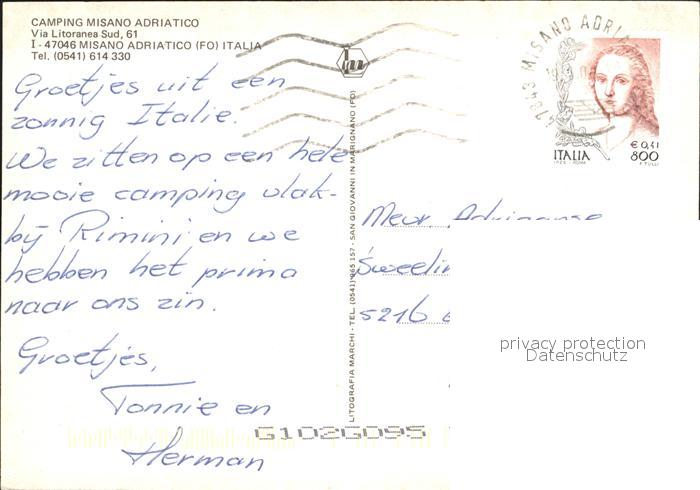 CAMPING MISANO ADRIATICO
Via Litoranea Sud, 61
I - 47046 MISANO ADRIATICO (FO) ITALIA
Tel. (0541) 614 330
Groetjes uit een
zonnig Italie.
We zitten op een hele
mooie camping vlak-
bij Rimini en we
hebben het prima
naar ons zin.
Groetjes,
Tonnie en
Herman
LITOGRAFIA MARCHI - TEL. (0541) 965 157 - SAN GIOVANNI IN MARIGNANO (FO)
47843 MISANO ADRIA
ITALIA
€ 0,41
800
Mevr. Adriaanse
Sweelin
5216
privacy protection
Datenschutz
G102G095